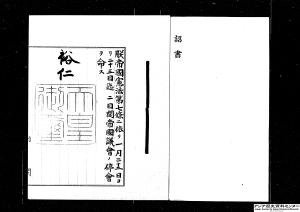 詔書
朕帝國憲法第七條ニ依リ一月二十二日ヨ
リ二十三日迄二日間帝國議會ノ停會
ヲ命ス
裕仁
天皇
御璽
アジア歴史資料センター